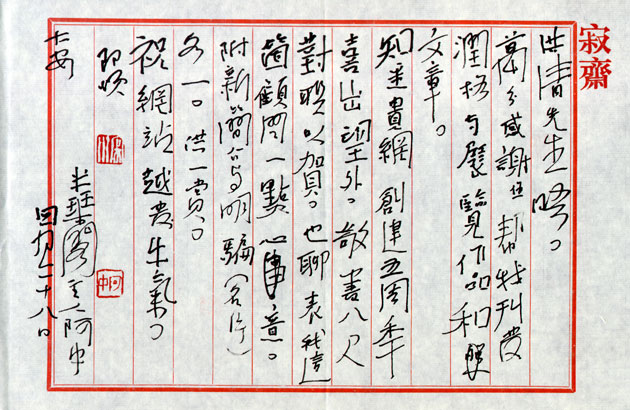 寂齋
洪清先生晤。
萬分感謝您幫我刊發
潤格与展覽作品和
文章。
知悉貴網創建五周年
喜出望外。敬書八尺
對聯以賀。也聊表我這
箇顧問一點心意。
附新 介与明騙（名片）
各一。供一
祝網站越發生氣。
即頌
大安
閣主人阿中
四月二十八日